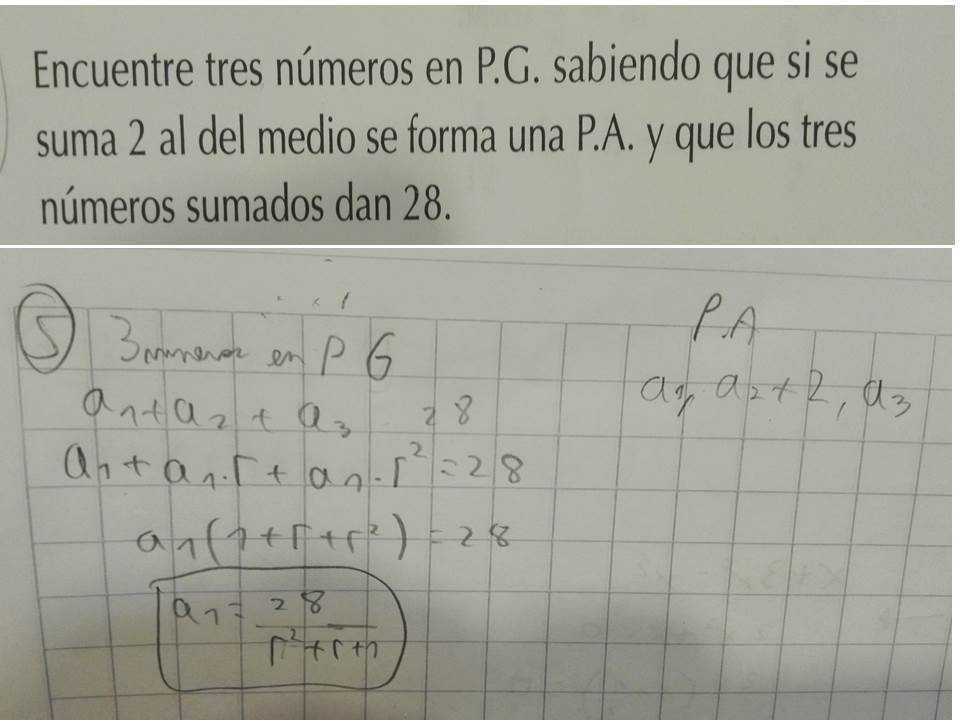 Encuentre tres números en P.G. sabiendo que si se
suma 2 al del medio se forma una P.A. y que los tres
números sumados dan 28.
5 3 numeros en PG
P.A
a₁+a₂+a₃ 28
a₁, a₂+2, a₃
a₁+a₁.r+a₁.r²=28
a₁(1+r+r²)=28
a₁=28/r²+r+1